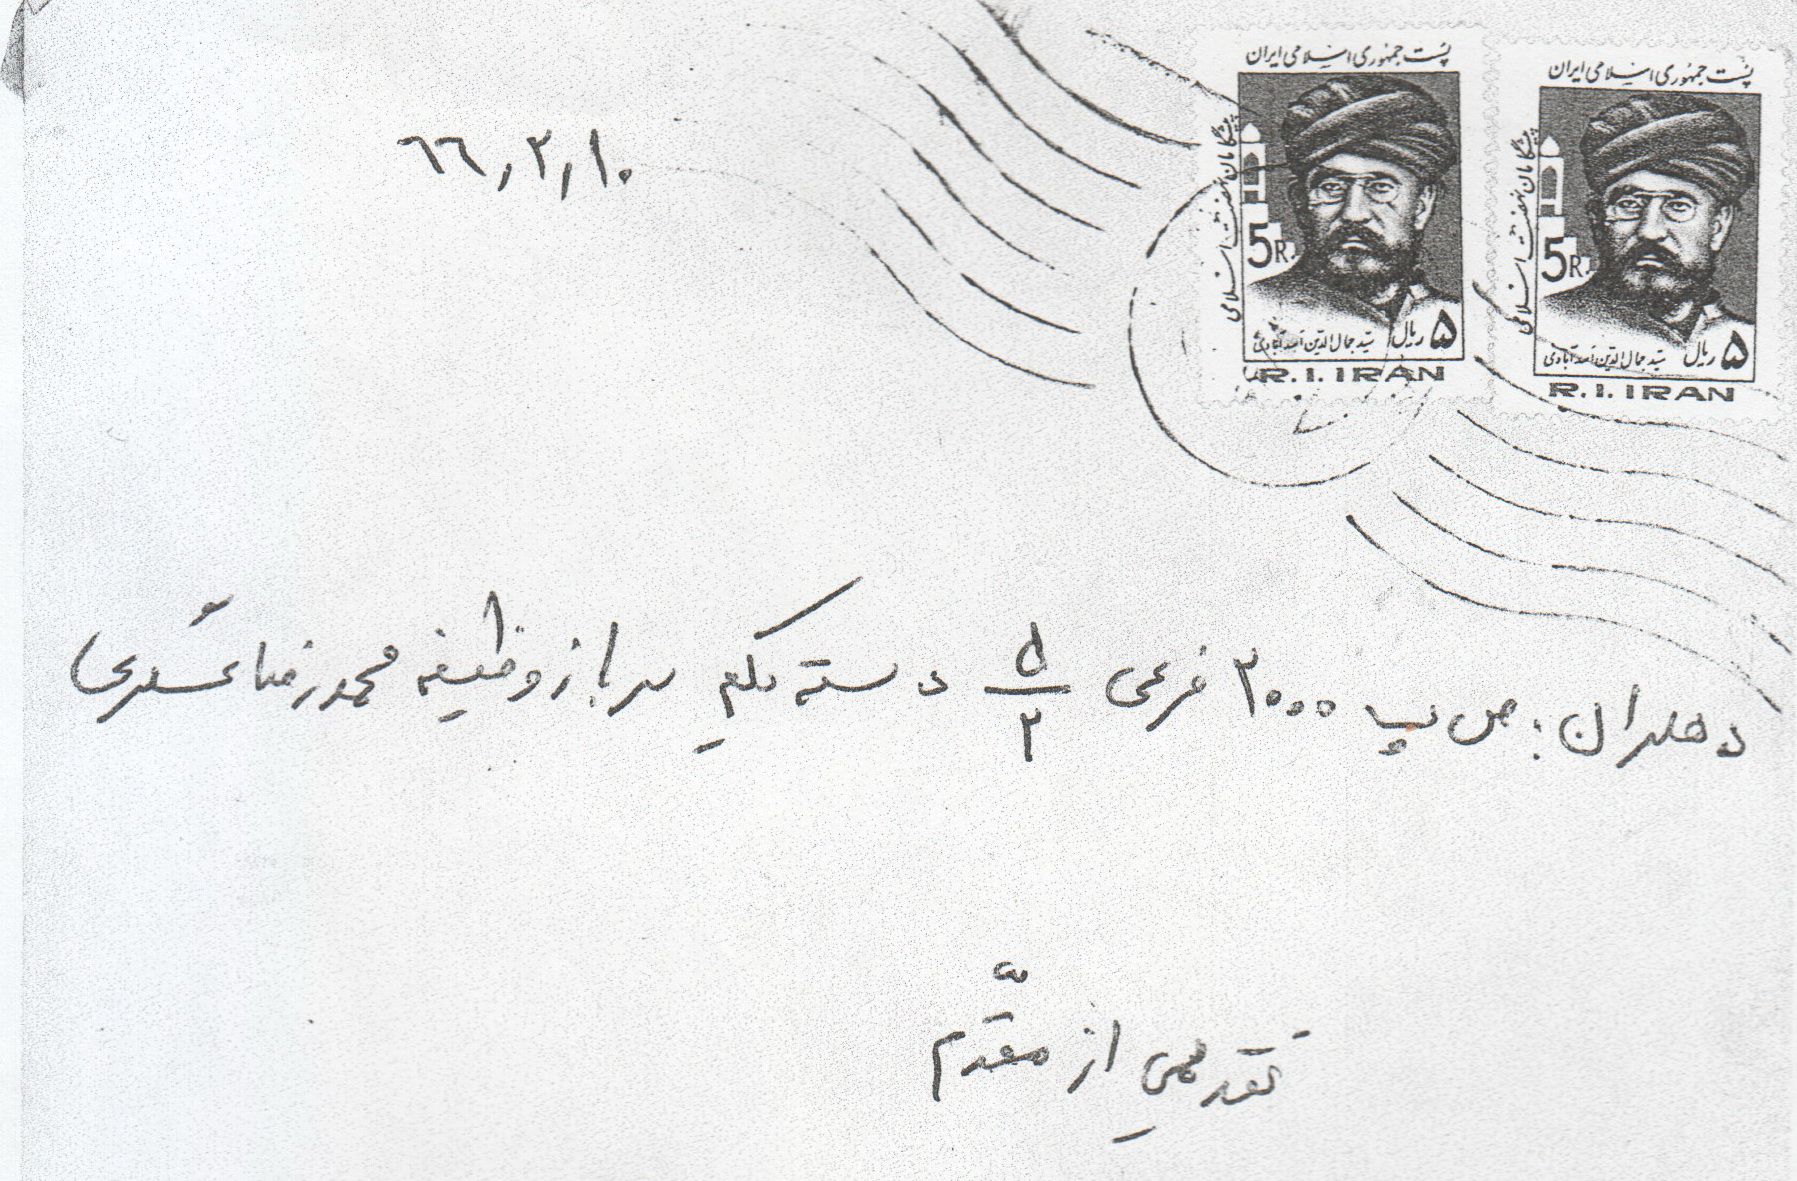 پست جمهوری اسلامی ایران
پیشگامان نهضت اسلامی
5R.
۵ ریال
سید جمال الدین اسدآبادی
R.I.IRAN
پست جمهوری اسلامی ایران
پیشگامان نهضت اسلامی
5R.
۵ ریال
سید جمال الدین اسدآبادی
R.I.IRAN
۶۶٫۲٫۱۰
دهلران: ص پ ۲۰۰۰ فرعی ۵/۲ دسته یکم سرباز وظیفه محمدرضا عسگری
تقدیمی از مقدّم